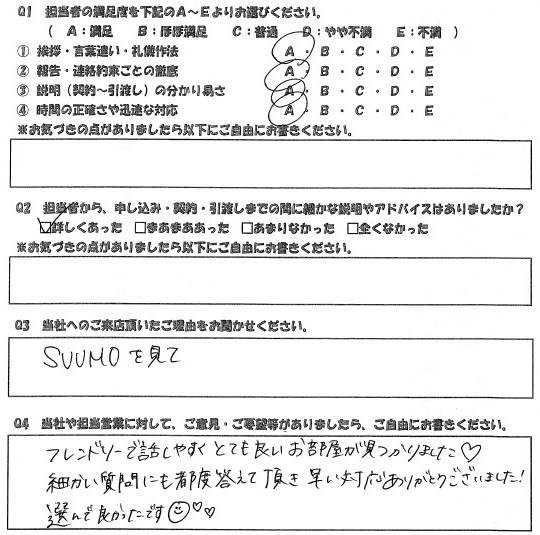 Q1 担当者の満足度を下記のA~Eよりお選びください。
( A:満足 B:ほぼ満足 C:普通 D:やや不満 E:不満 )
① 挨拶・言葉遣い・礼儀作法 A・B・C・D・E
② 報告・連絡約束ごとの徹底 A・B・C・D・E
③ 説明(契約~引渡し)の分かり易さ A・B・C・D・E
④ 時間の正確さや迅速な対応 A・B・C・D・E
※お気づきの点がありましたら以下にご自由にお書きください。
Q2 担当者から、申し込み・契約・引渡しまでの間に細かな説明やアドバイスはありましたか?
☑詳しくあった □まあまああった □あまりなかった □全くなかった
※お気づきの点がありましたら以下にご自由にお書きください。
Q3 当社へのご来店頂いたご理由をお聞かせください。
SUUMOを見て
Q4 当社や担当営業に対して、ご意見・ご要望等がありましたら、ご自由にお書きください。
フレンドリーで話しやすくとても良いお部屋が見つかりました♡
細かい質問にも都度答えて頂き早い対応ありがとうございました!
選んで良かったです☺♡♡